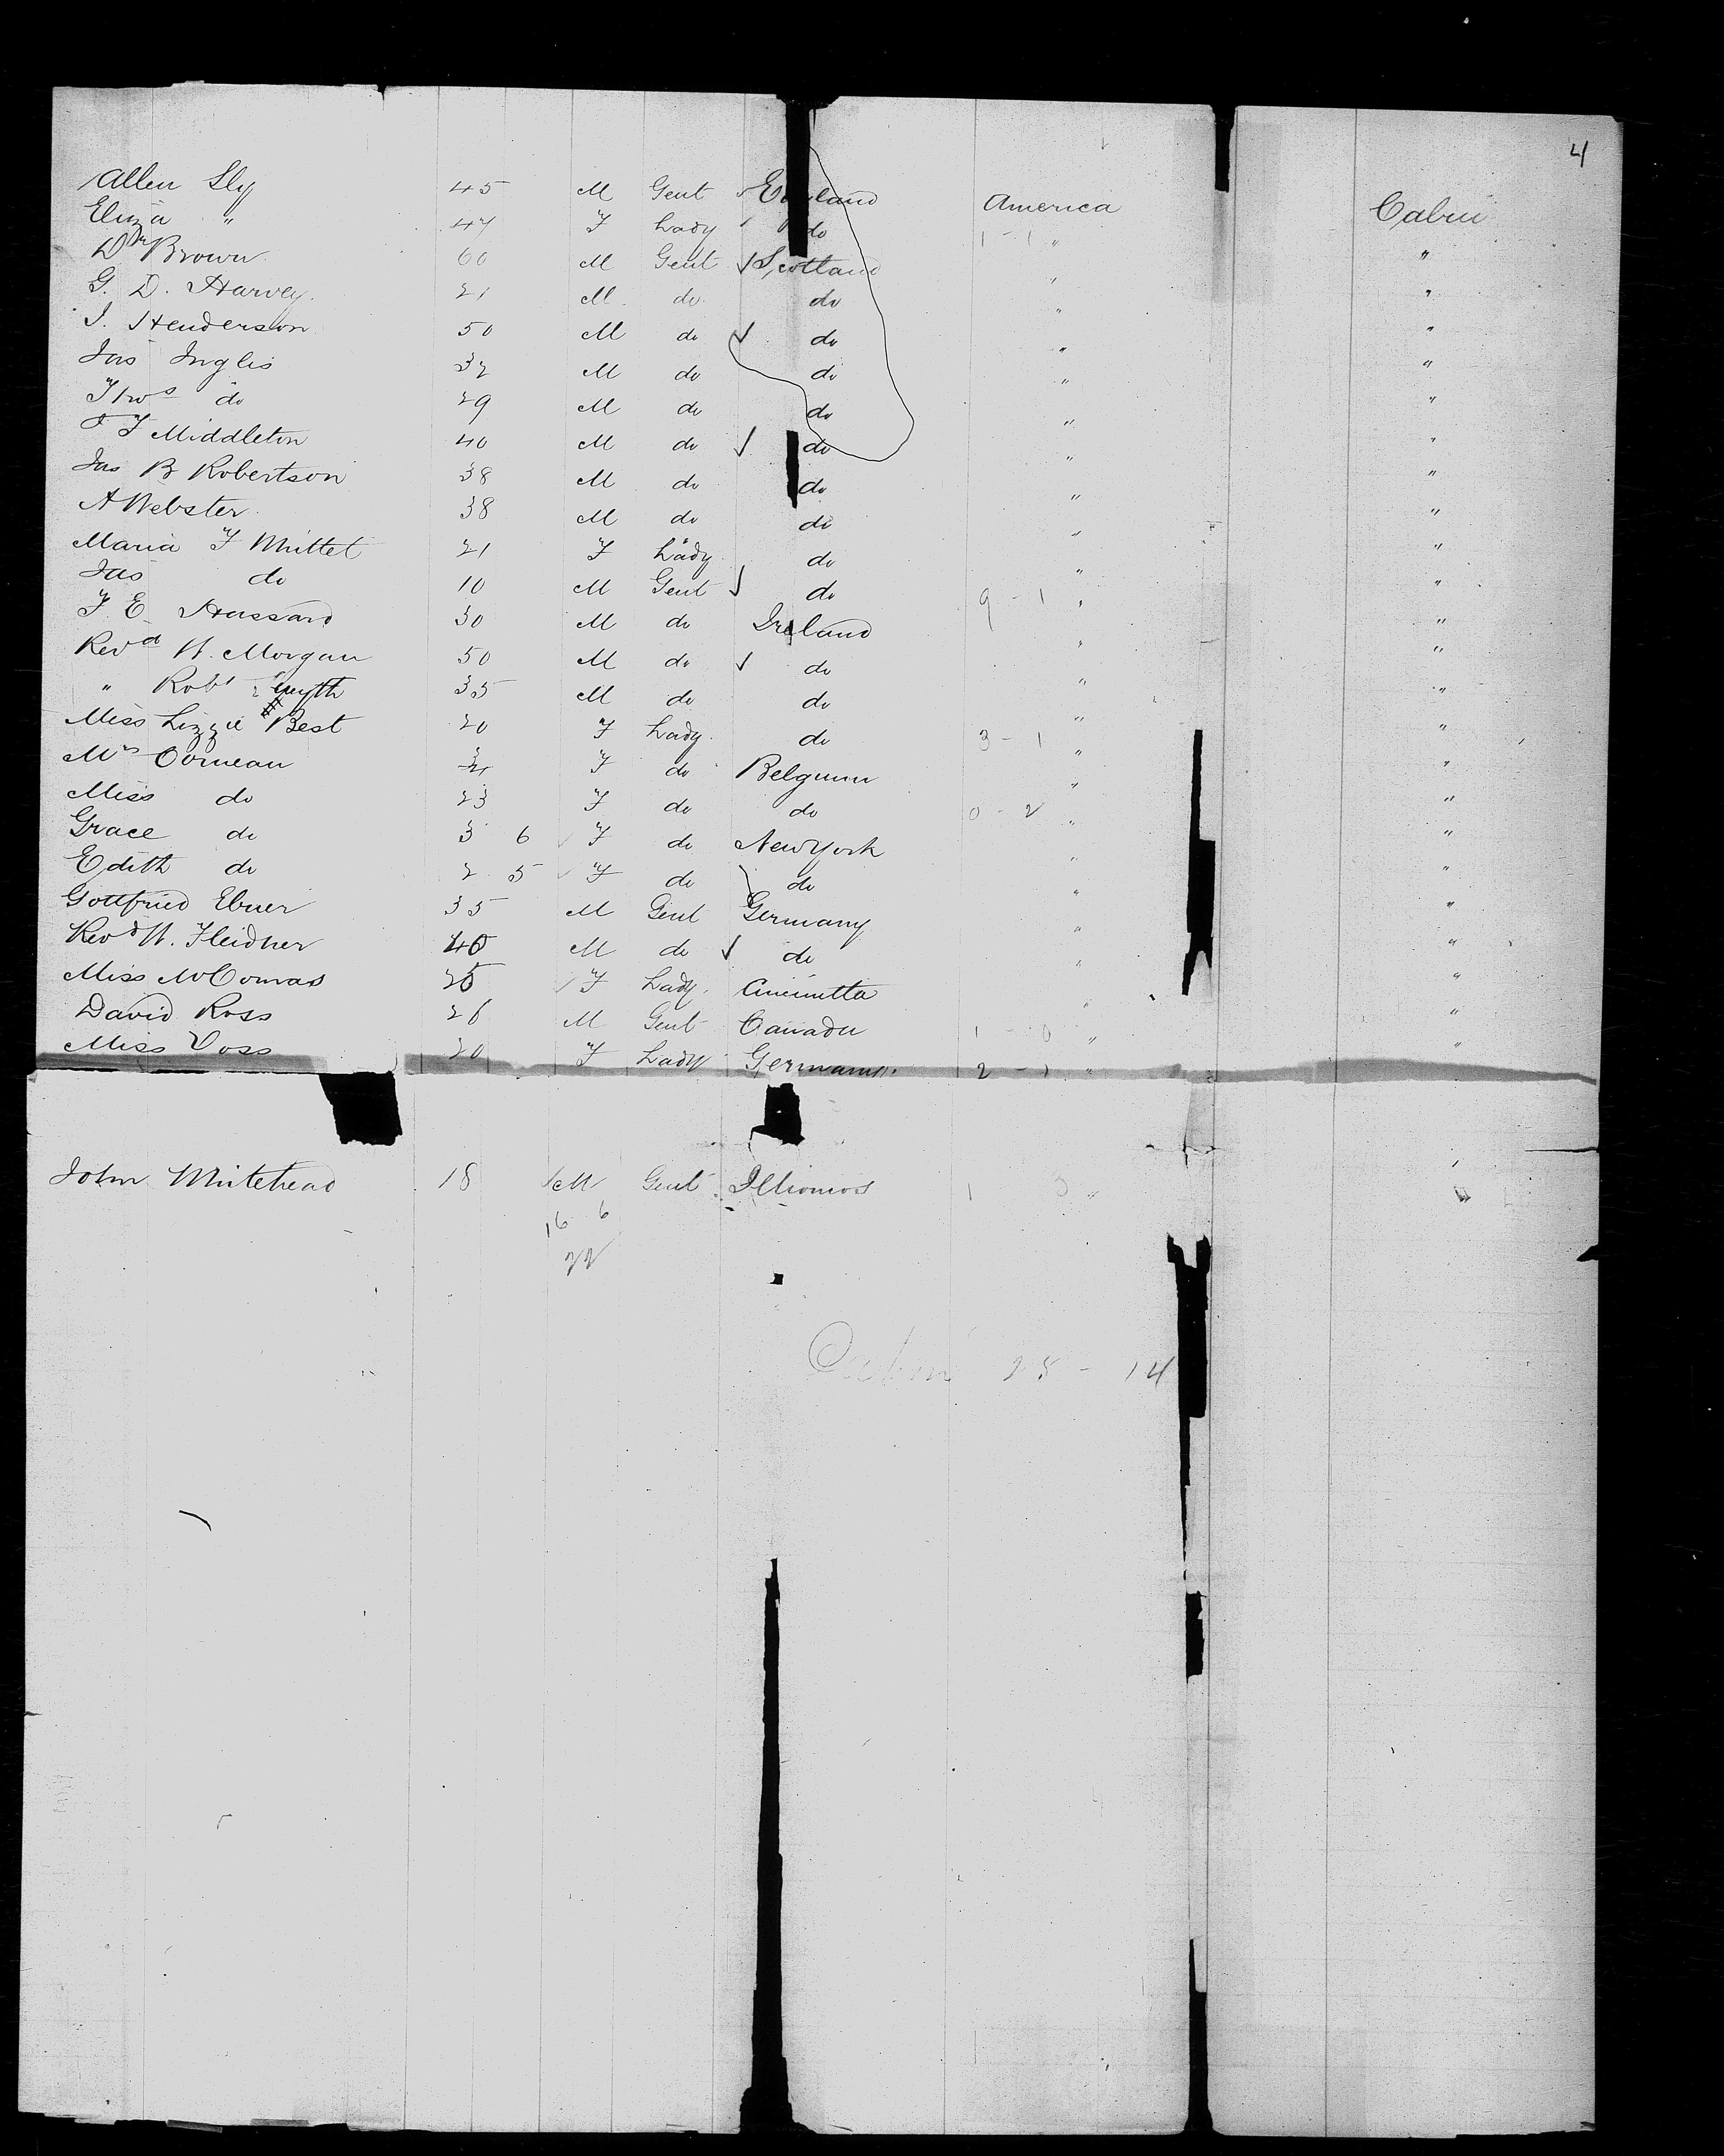 4
Allen Sly 45 M Gent England America Cabin
Eliza " 47 F Lady do 1 - 1 " "
Dr Brown 60 M Gent Scotland " "
G. D. Harvey 21 M do do " "
J. Henderson 50 M do do " "
Jas Inglis 32 M do do " "
do 29 M do do " "
Middleton 40 M do do " "
Jas B Robertson 38 M do do " "
A Webster 38 M do do " "
Maria F 21 F Lady do " "
Jas do 10 M Gent do 9 - 1 " "
F. E. Hassard 30 M do Ireland " "
Revd W. Morgan 50 M do do " "
" Robt 35 M do do " "
Miss Lizzie Best 20 F Lady do 3 - 1 " "
Mrs Corneau F do Belgium " "
Miss do 23 F do do 0 - 2 " "
Grace do 3 6 F do New York " "
Edith do 2 5 F do do " "
Gottfried Ebner 35 M Gent Germany " "
Revd W. Fleidner 40 M do do " "
Miss McComas F Lady " "
David Ross 26 M Gent Canada 1 - 0 " "
Miss Voss 20 F Lady Germany 2 - 1 "
John Whitehead 18 M Gent Illionois 1 "
16 6
22
Cabin 28 - 14